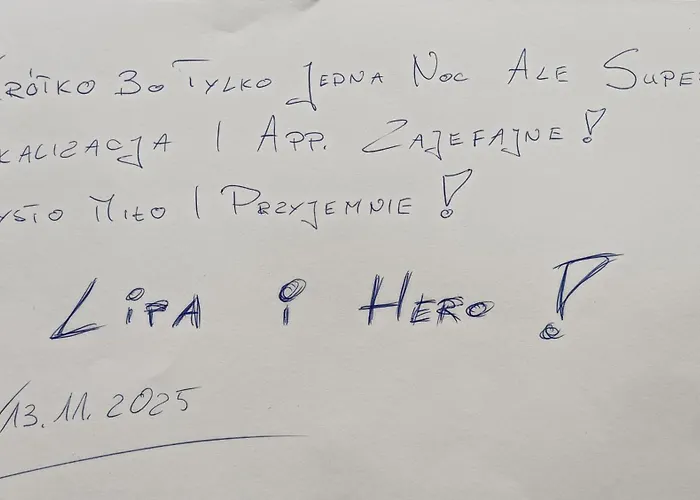 KRÓTKO BO TYLKO JEDNA NOC ALE SUPER
KALIZACJA I APP. ZAJEFAJNE!
YSTO MIŁO I PRZYJEMNIE!
LIPA i HERO!
/13.11.2025